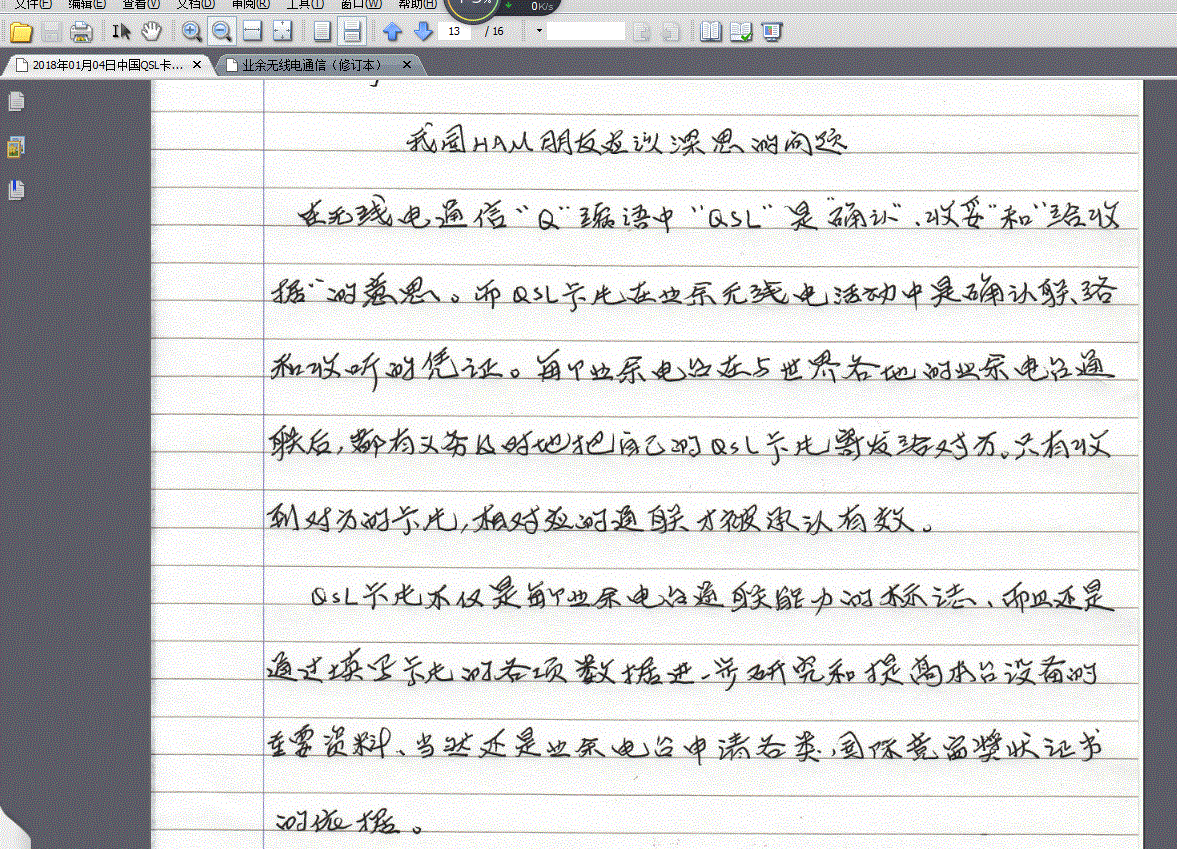 文件(F) 编辑(E) 查看(V) 文档(D) 审阅(R) 工具(T) 窗口(W) 帮助(H) 0K/s
13 / 16
2018年01月04日中国QSL卡... × 业余无线电通信（修订本） ×
我国HAM朋友应该深思的问题
在无线电通信“Q”编语中“QSL”是“确认”、“收妥”和“给收
据”的意思。而QSL卡片在业余无线电活动中是确认联络
和收听的凭证。每个业余电台在与世界各地的业余电台通
联后，都有义务及时地把自己的QSL卡片寄发给对方。只有收
到对方的卡片，相对应的通联才被承认有效。
QSL卡片不仅是每个业余电台通联能力的标志、而且还是
通过填写卡片的各项数据进一步研究和提高本台设备的
重要资料、当然还是业余电台申请各类、国际竞赛奖状证书
的依据。